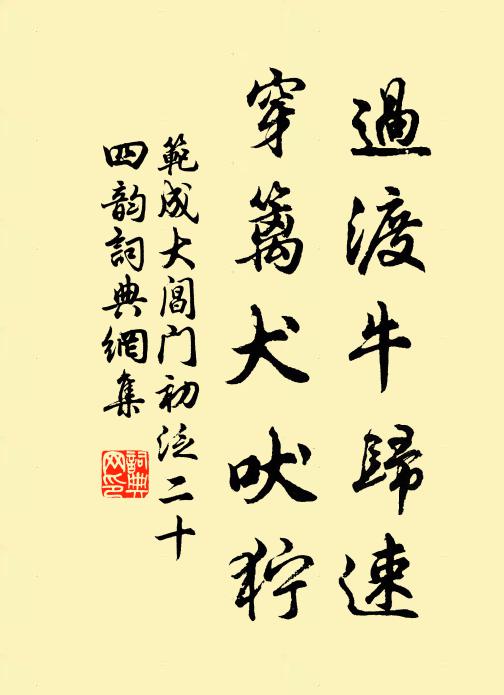 過渡牛歸速
穿籬犬吠狞
範成大閶门初泛二十
四韵詞典網集
詞典
网印